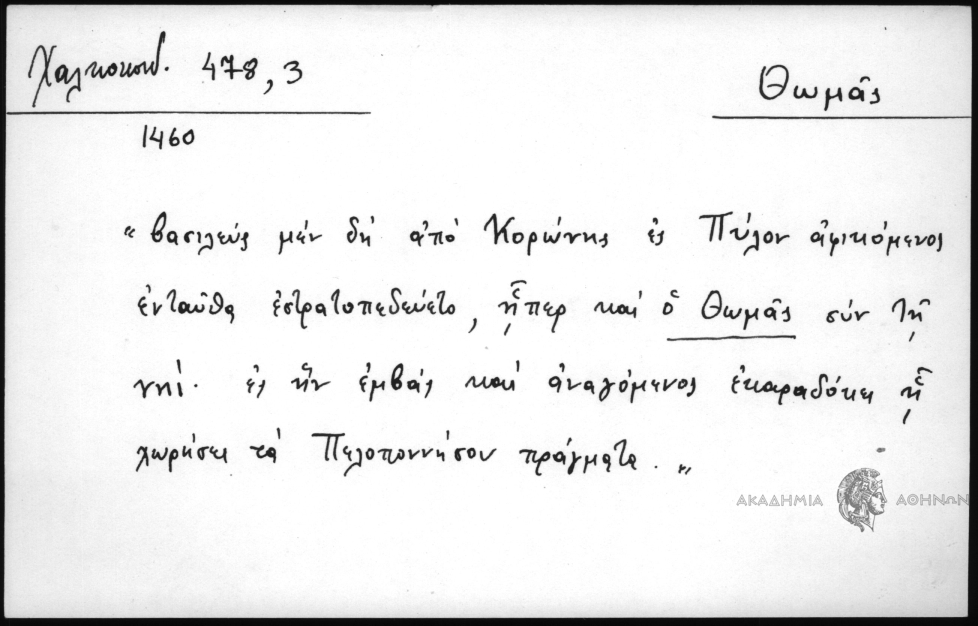 Χαλκοκονδ. 478,3
Θωμᾶς
1460
"βασιλεύς μέν δή ἀπό Κορώνης ἐς Πύλον ἀφικόμενος
ἐνταῦθα ἐστρατοπεδεύετο, ᾗπερ καί ὁ Θωμᾶς σύν τῇ
νηί. ἐς ἥν ἐμβάς καί ἀναγόμενος ἐκαραδόκει ᾗ
χωρήσει τά Πελοποννήσου πράγματα."
ΑΚΑΔΗΜΙΑ ΑΘΗΝΩΝ